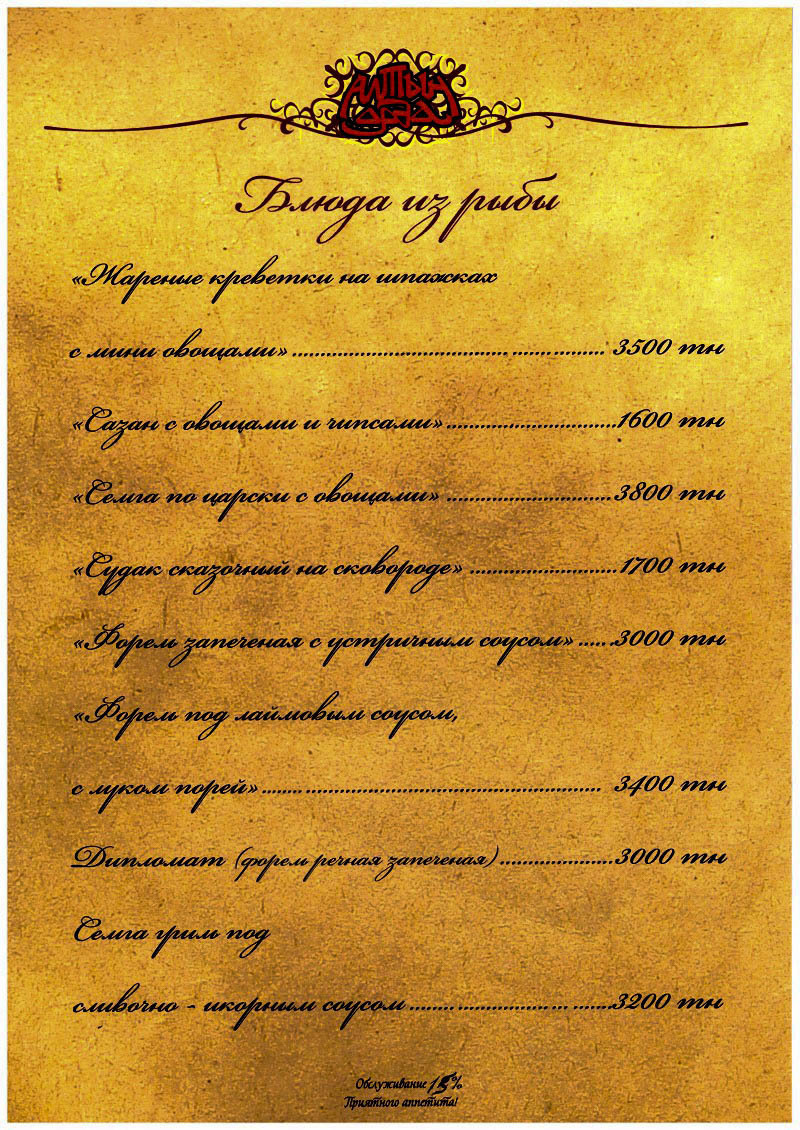 Алтын
Блюда из рыбы
«Жареные креветки на шпажках
с мини овощами» ........................................................ 3500 тн
«Сазан с овощами и чипсами» ..............................1600 тн
«Семга по царски с овощами» ..............................3800 тн
«Судак сказочный на сковороде» ...........................1700 тн
«Форель запеченая с устричным соусом» ......3000 тн
«Форель под лаймовым соусом,
с луком порей» ............................................................ 3400 тн
Дипломат (форель речная запеченая) ....................3000 тн
Семга гриль под
сливочно - икорным соусом ....................................3200 тн
Обслуживание
Приятного аппетита!